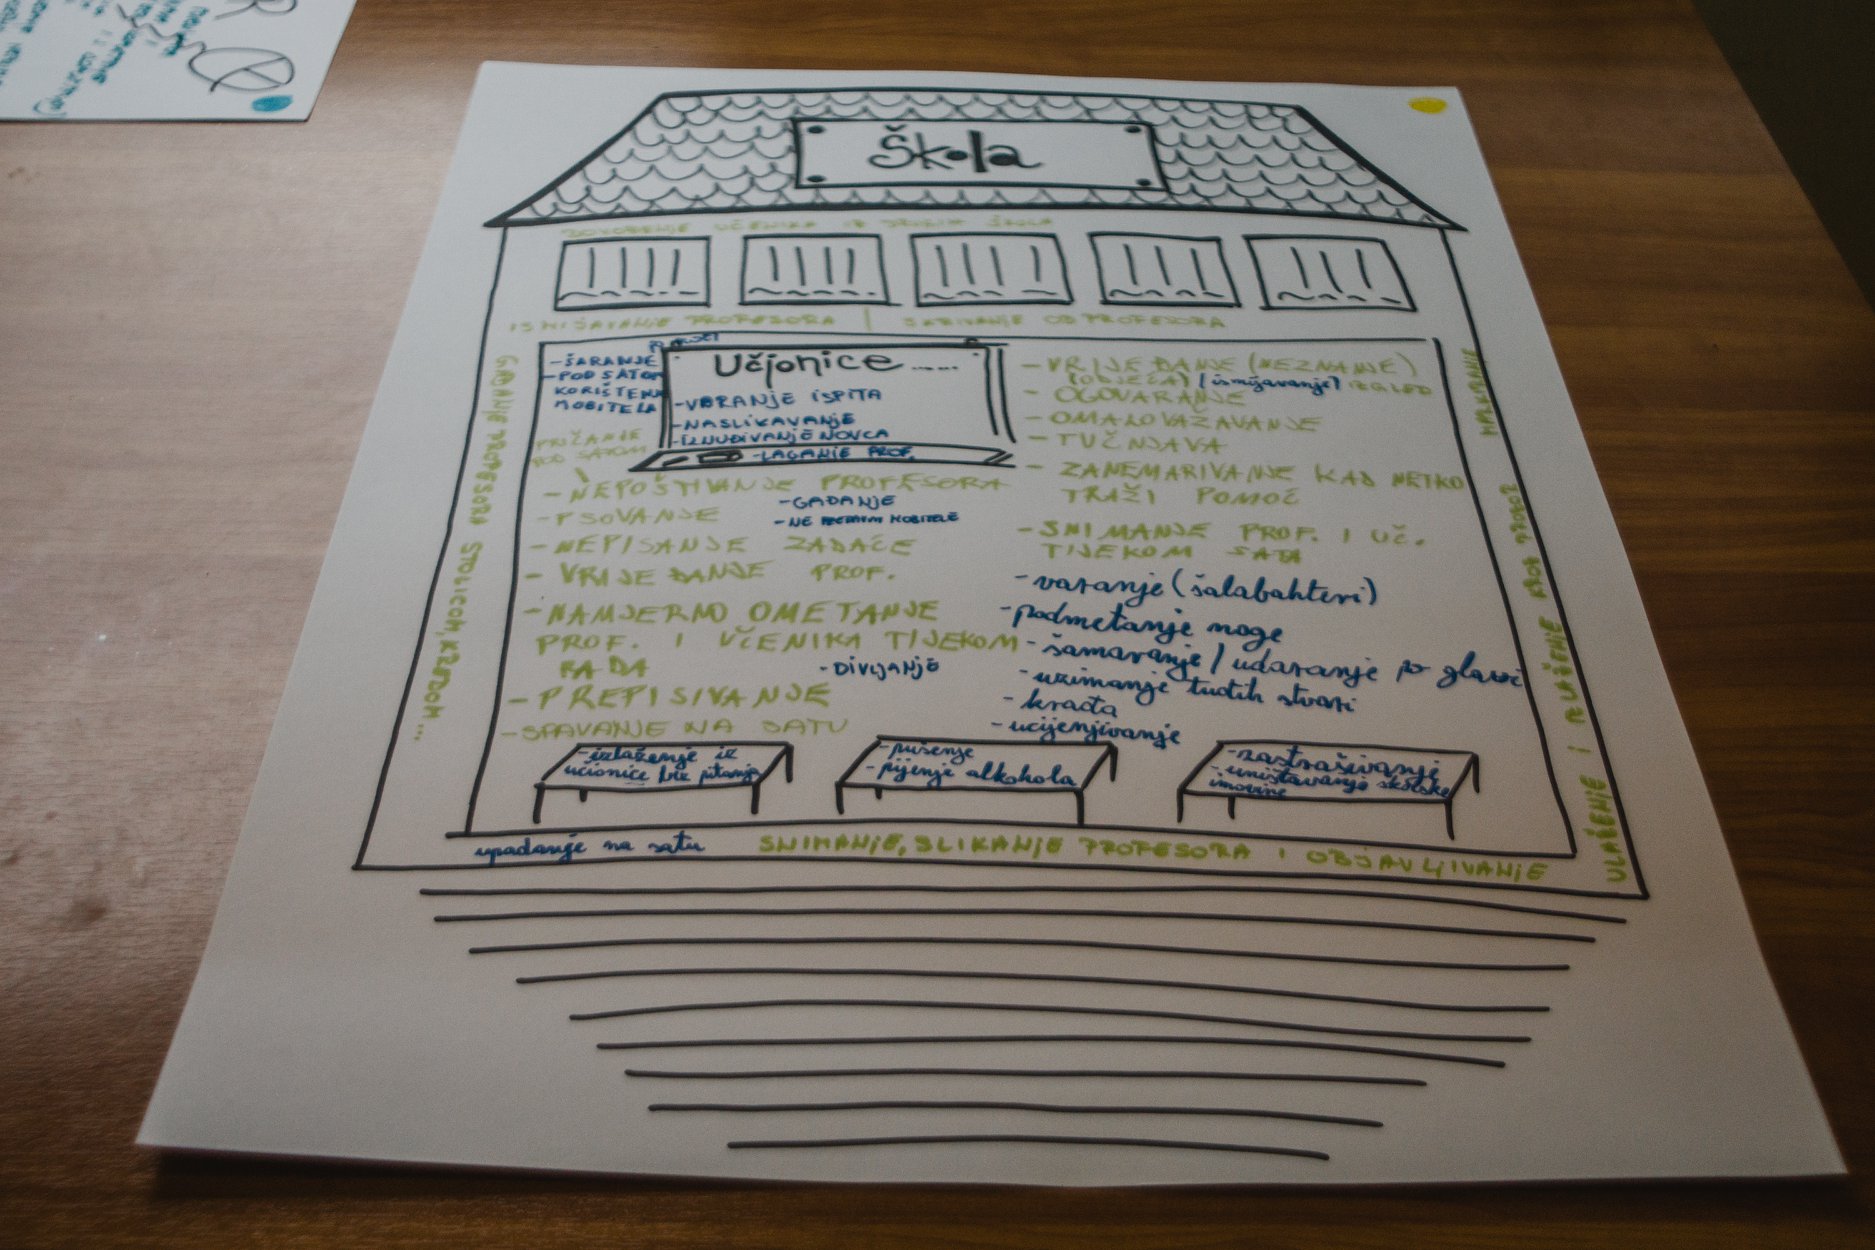 Škola
DOVOĐENJE UČENIKA IZ DRUGIH ŠKOLA
ISMIJAVANJE PROFESORA | SKRIVANJE OD PROFESORA
GAĐANJE PROFESORA STOLICOM, KREDOM...
- ŠARANJE
- POD SATOM
KORIŠTENJE
MOBITELA
PRIČANJE
POD SATOM
Učionice......
- VARANJE ISPITA
- NASLIKAVANJE
- IZNUĐIVANJE NOVCA
- LAGANJE PROF.
- NEPOŠTIVANJE PROFESORA
- GAĐANJE
- PSOVANJE
- NE MOBITELE
- NEPISANJE ZADAĆE
- VRIJEĐANJE PROF.
- NAMJERNO OMETANJE
PROF. I UČENIKA TIJEKOM
RADA
- DIVLJANJE
- PREPISIVANJE
- SPAVANJE NA SATU
- VRIJEĐANJE (NEZNANJE)
(ODJEĆA) (ismijavanje) IZGLED
- OGOVARANJE
- OMALOVAŽAVANJE
- TUČNJAVA
- ZANEMARIVANJE KAD NETKO
TRAŽI POMOĆ
- SNIMANJE PROF. I UČ.
TIJEKOM SATA
- varanje (šalabahteri)
- podmetanje noge
- šamaranje / udaranje po glavi
- uzimanje tuđih stvari
- krađa
- ucijenjivanje
- izlaženje iz
učionice bez pitanja
- pušenje
- pijenje alkohola
- zastrašivanje
- uništavanje školske
imovine
upadanje na satu
SNIMANJE, SLIKANJE PROFESORA I OBJAVLJIVANJE
ULAŽENJE I IZLAŽENJE KROZ PROZOR